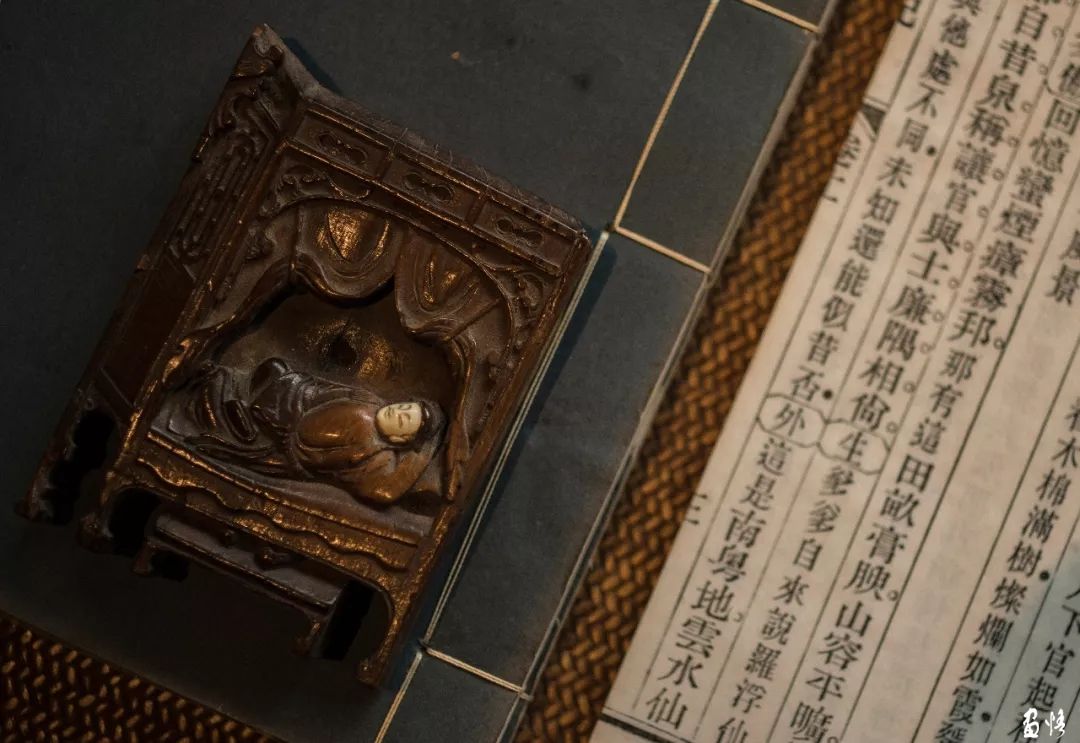 下官起
木棉滿樹燦爛如霞
風景
回憶蠻煙瘴霧邦那有這田畝膏腴山容平曠
自昔泉稱讓官與士廉隅相尚生爹爹自來說羅浮仙
與他處不同未知還能似昔否外這是南粵地雲水仙